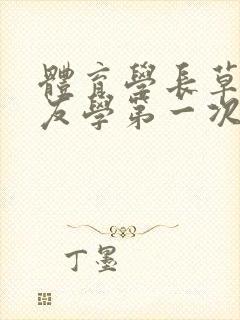 體育學長草
友學第一次
丁墨